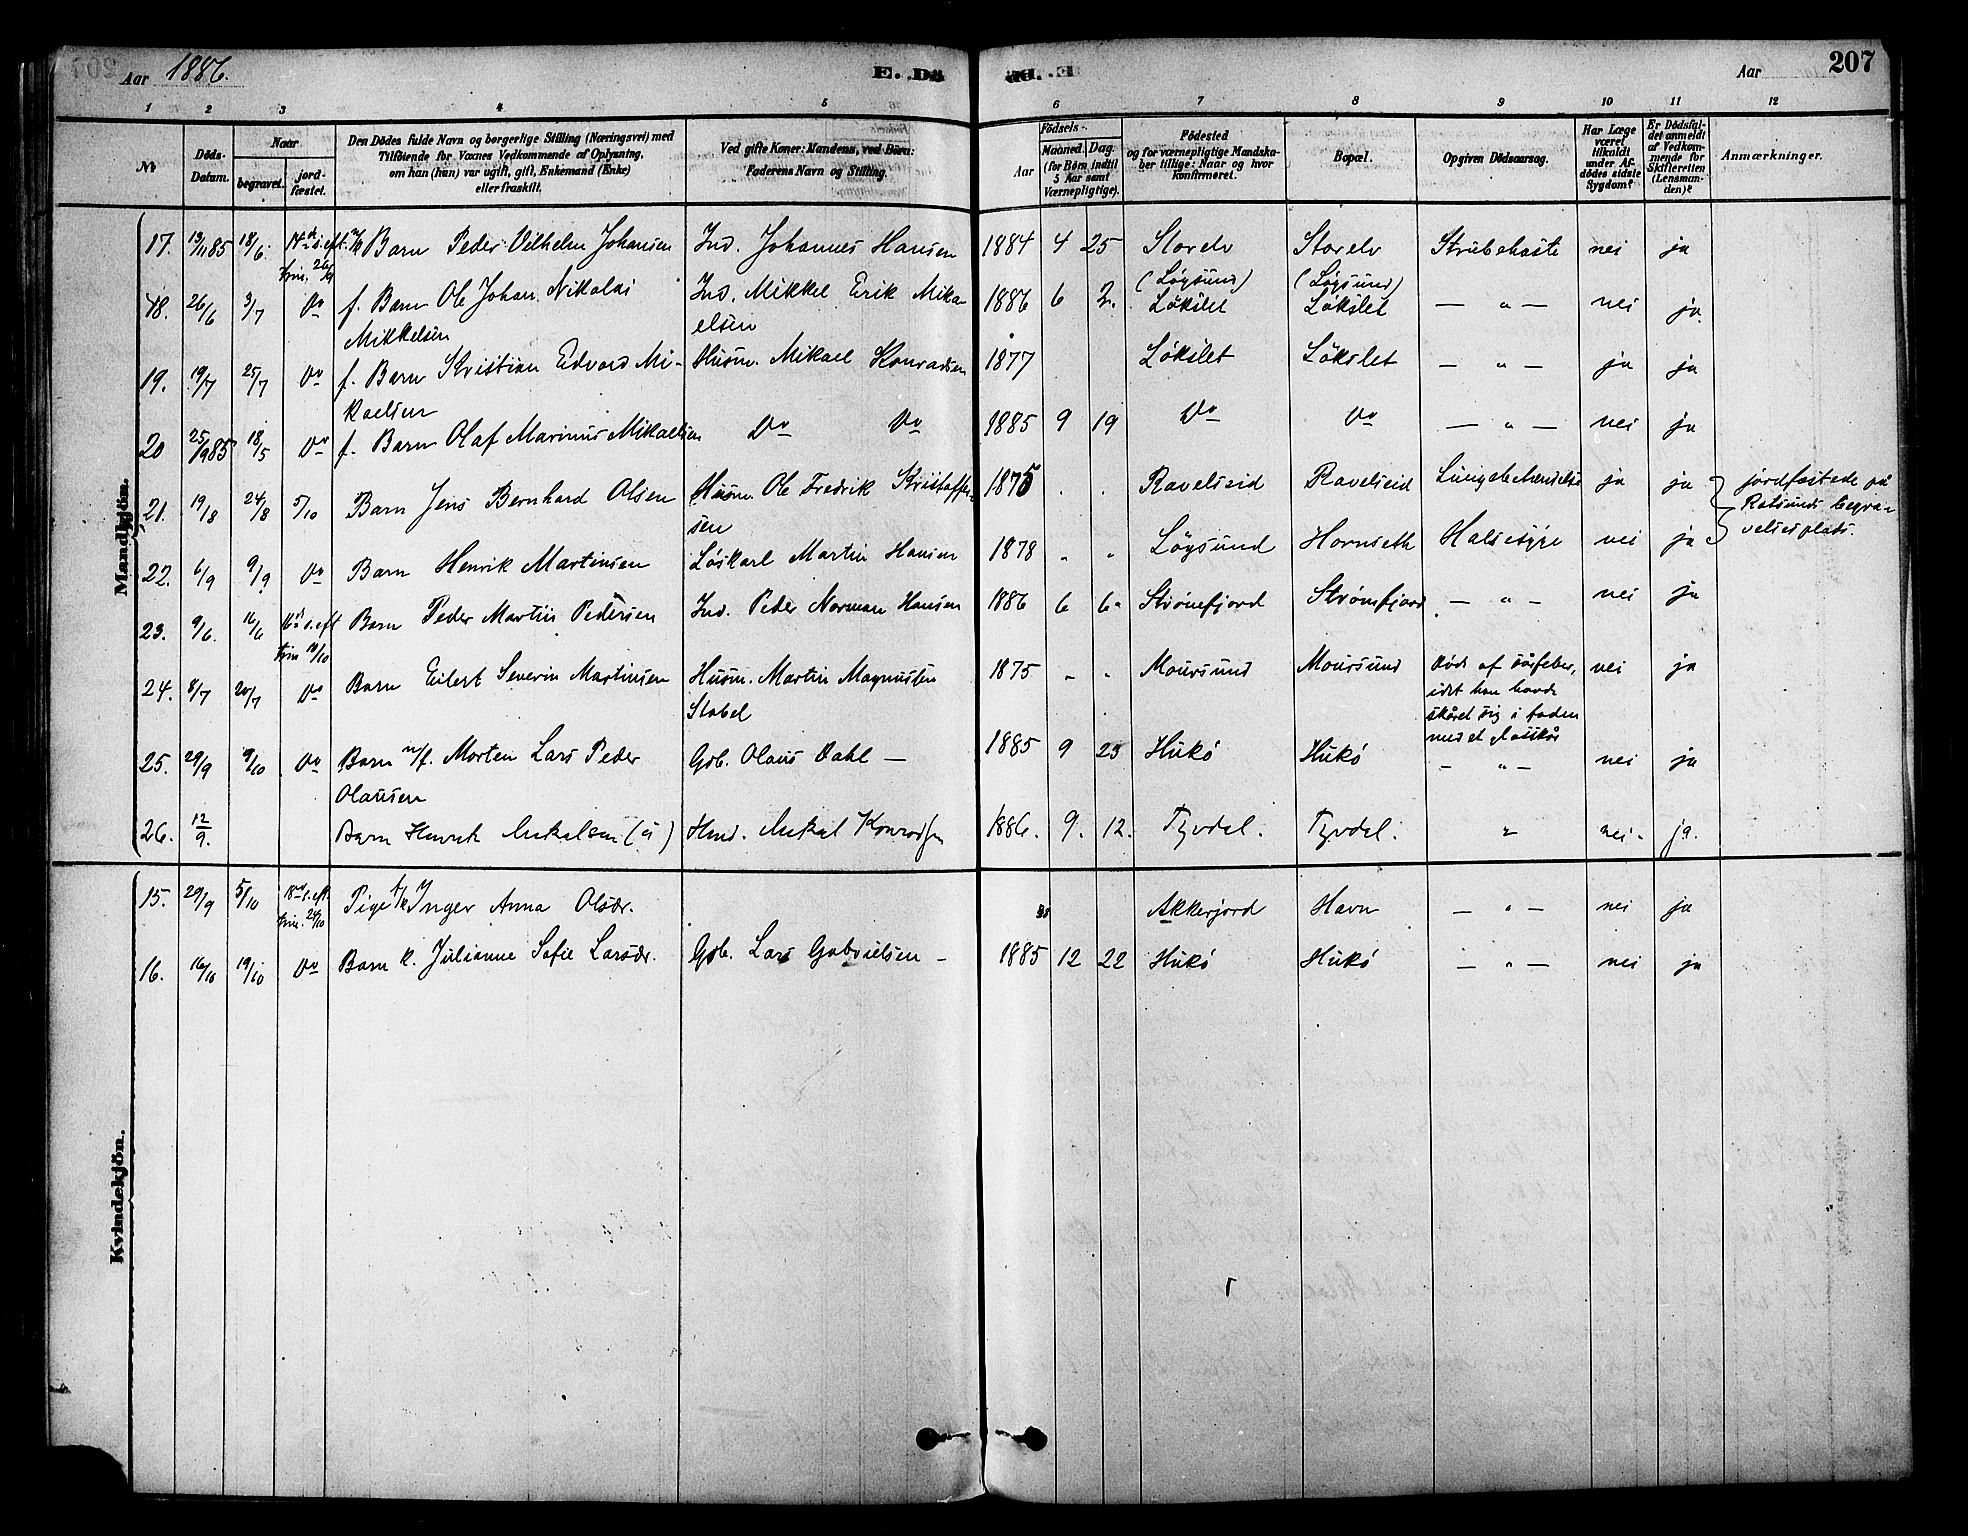 Aar 1886.
E. Dö
E. Dö
Aar
207
1 2 3 4 5 6 7 8 9 10 11 12
№
Döds-Datum.
Naar
begravet.
jordfæstet.
Den Dödes fulde Navn og borgerlige Stilling (Næringsvei) med
Tilföiende for Voxnes Vedkommende af Oplysning,
om han (hun) var ugift, gift, Enkemand (Enke)
eller fraskilt.
Ved gifte Koner: Mandens, ved Börn:
Faderens Navn og Stilling.
Födsels-
Aar
Maaned. Dag.
(for Börn indtil
5 Aar samt
Værnepligtige).
Födested
og for værnepligtige Mandskaber tillige: Naar og hvor
konfirmeret.
Bopæl.
Opgiven Dödsaarsag.
Har Læge
været
tilkaldt
under Afdödes sidste
Sygdom?
Er Dödsfaldet anmeldt
af Vedkommende for
Skifteretten
(Lensmanden)?
Anmærkninger.
Mandkjön.
17. 13/11 85 18/6 14de s. eft. trin. 26/9 Barn Peder Vilhelm Johansen Ind. Johannes Hansen 1884 4 25 Storelv Storelv Strubehoste nei ja
18. 26/6 3/7 Do f. Barn Ole Johan Nikolai Mikkelsen Ind. Mikkel Erik Mikaelsen 1886 6 2. (Løgsund) Løkslet (Løgsund) Løkslet — " — nei ja
19. 19/7 25/7 Do f. Barn Kristian Edvard Mikaelsen Husm. Mikael Konradsen 1877 Løkslet Løkslet — " — ja ja
20 25/9 85 18/5 Do f. Barn Olaf Marinus Mikaelsen Do Do 1885 9 19 Do Do — " — nei ja
21. 19/8 24/8 5/10 Barn Jens Bernhard Olsen Husm. Ole Fredrik Kristoffersen 1875 . . Ravelseid Ravelseid Lungebetændelse ja ja jordfæstede på Rotsunds begravelsesplads.
22. 6/9 9/9 Do Barn Henrik Martinsen Løskarl Martin Hansen 1878 " " Løgsund Hornseth Halsesyge nei ja
23. 9/6. 16/6 16de s. eft trin 10/10 Barn Peder Martin Pedersen Ind. Peder Norman Hansen 1886 6 6 Strømfjord Strømfjord — " — nei ja
24. 8/7 20/7 Do Barn Eilert Severin Martinsen Husm. Martin Magnussen Stabel 1875 " " Moursund Moursund Døde af sårfeber, idet han havde skåret sig i foden med et glasskår nei ja
25. 29/9 9/10 Do Barn n/f. Morten Lars Peder Olausen Gbb. Olaus Dahl — 1885 9 23 Hukø Hukø — " — nei ja
26. 12/9. Barn Henrik Mikalsen (u) Hmd. Mikal Konradsen 1886. 9. 12. Tyvdal. Tyvdal. " nei. ja.
Kvindekjön.
15. 29/9 5/10 18de s. eft. trin. 24/10 Pige Inger Anna Olsdr. Akkerjord Havn — " — nei ja
16. 16/10 19/10 Do Barn k. Julianne Sofie Larsdr. Gbb. Lars Gabrielsen — 1885 12 22 Hukø Hukø — " — nei ja